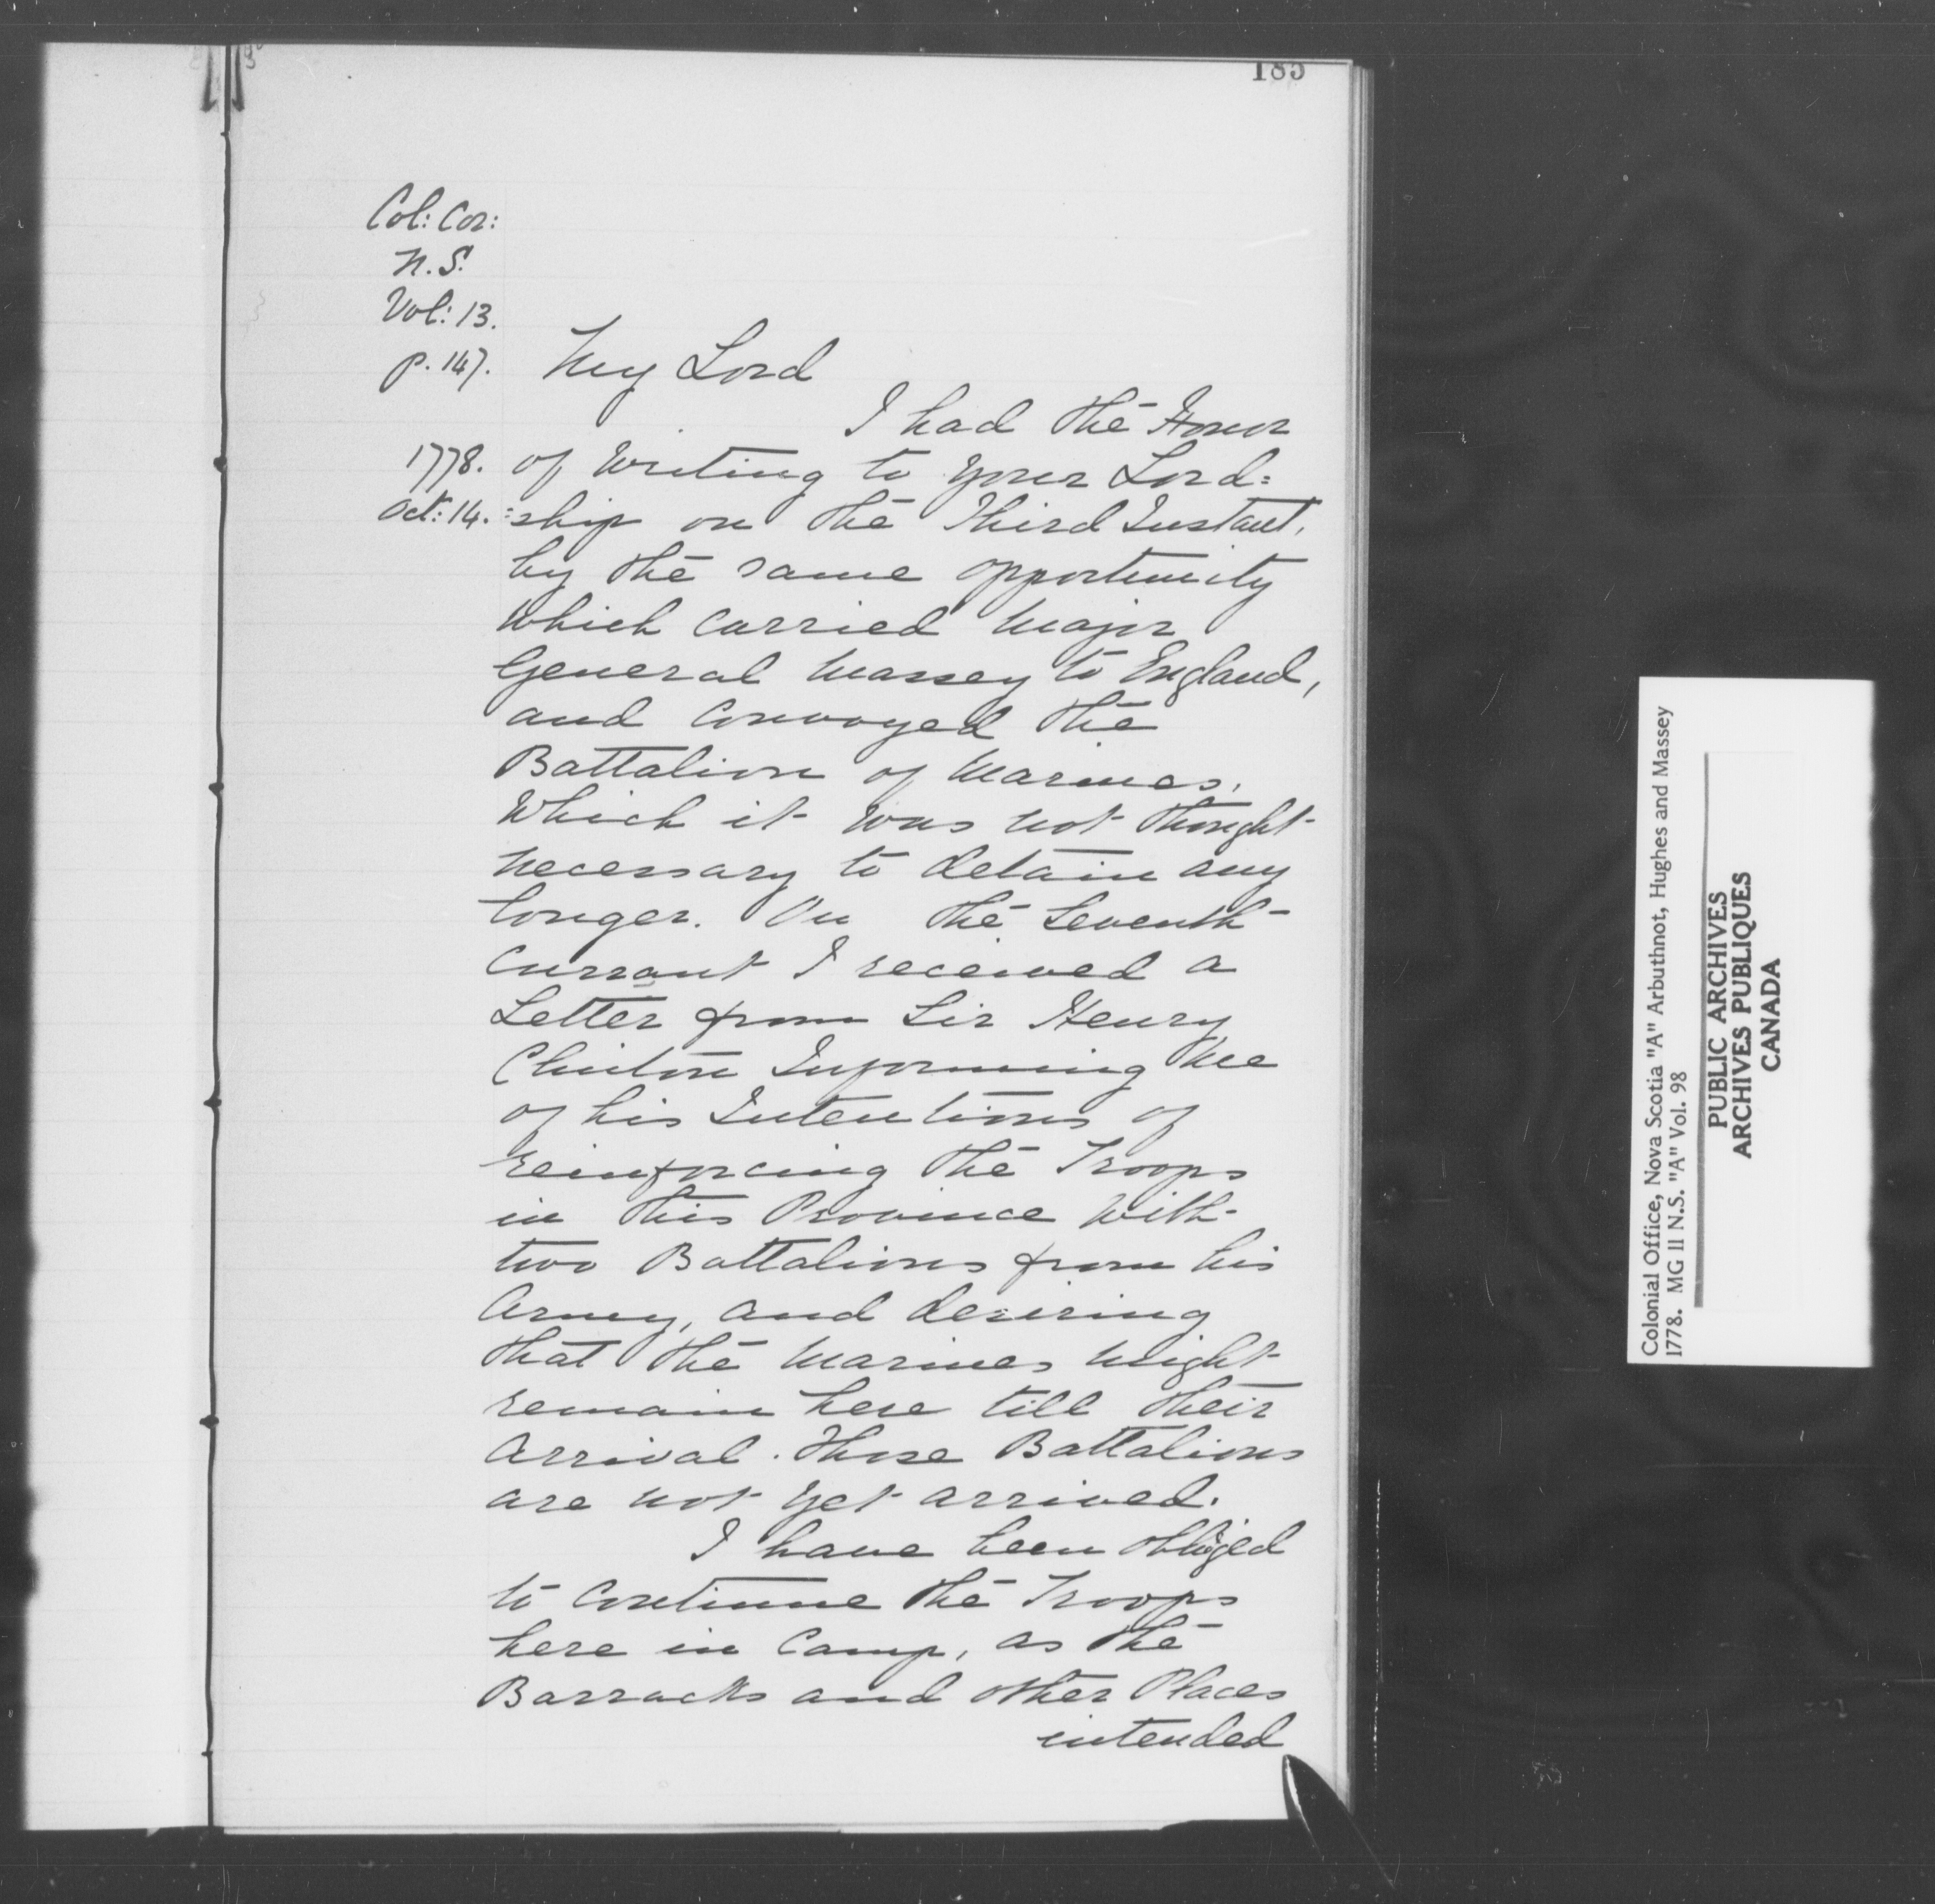 185
Col: Cor:
N.S.
Vol: 13.
p. 147.
My Lord
I had the Honor
1778. of Writing to your Lord=
Oct: 14. =ship on the Third Instant,
by the same opportunity
which carried Major
General Massey to England,
and Convoyed the
Battalion of Marines,
Which it was not thought
necessary to detain any
longer. On the Seventh
Currant I received a
Letter from Sir Henry
Clinton Informing Me
of his Intentions of
reinforcing the Troops
in this Province with
two Battalions from his
Army, and desiring
that the Marines might
remain here till their
Arrival. Those Battalions
are not yet arrived.
I have been obliged
to Continue the Troops
here in Camp, as the
Barracks and other Places
intended
Colonial Office, Nova Scotia "A" Arbuthnot, Hughes and Massey
1778. MG 11 N.S. "A" Vol. 98
PUBLIC ARCHIVES
ARCHIVES PUBLIQUES
CANADA